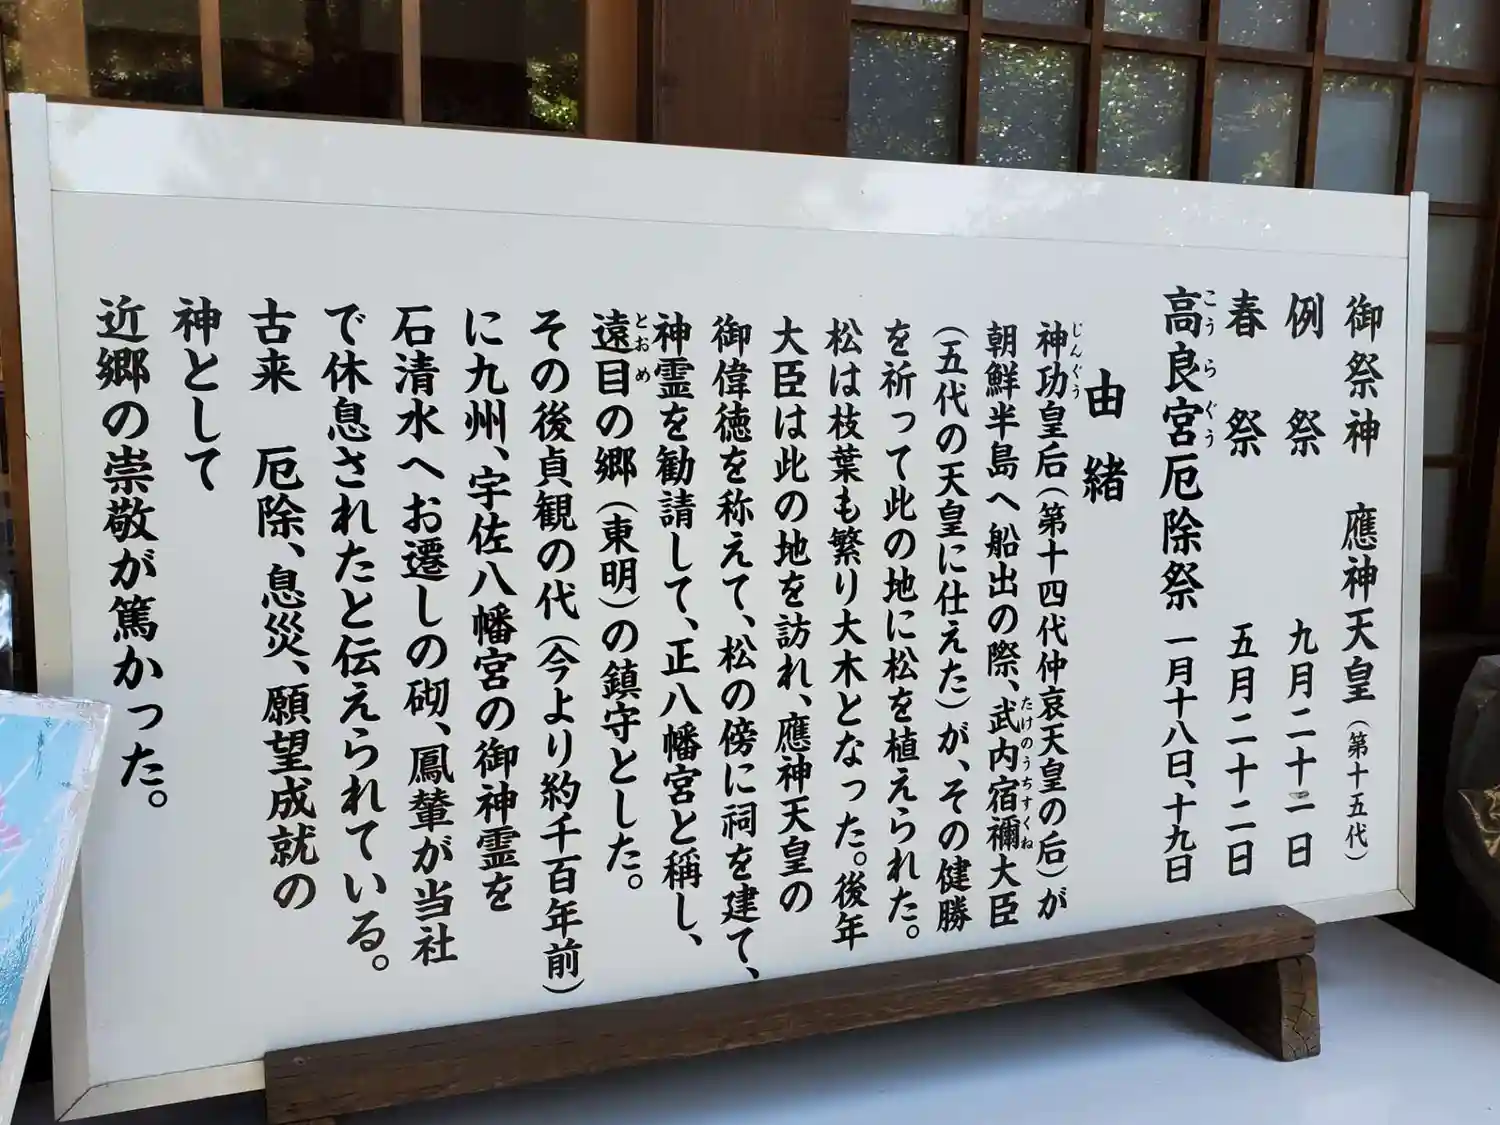 御祭神　應神天皇（第十五代）
例　祭　九月二十二日
春　祭　五月二十二日
高良宮厄除祭　一月十八日、十九日
こうらぐう
由　緒
神功皇后（第十四代仲哀天皇の后）が
じんぐう
朝鮮半島へ船出の際、武内宿禰大臣
たけのうちすくね
（五代の天皇に仕えた）が、その健勝
を祈って此の地に松を植えられた。
松は枝葉も繁り大木となった。後年
大臣は此の地を訪れ、應神天皇の
御偉徳を称えて、松の傍に祠を建て、
神霊を勧請して、正八幡宮と稱し、
遠目の郷（東明）の鎮守とした。
とおめ
その後貞観の代（今より約千百年前）
に九州、宇佐八幡宮の御神霊を
石清水へお遷しの砌、鳳輦が当社
で休息されたと伝えられている。
古来　厄除、息災、願望成就の
神として
近郷の崇敬が篤かった。